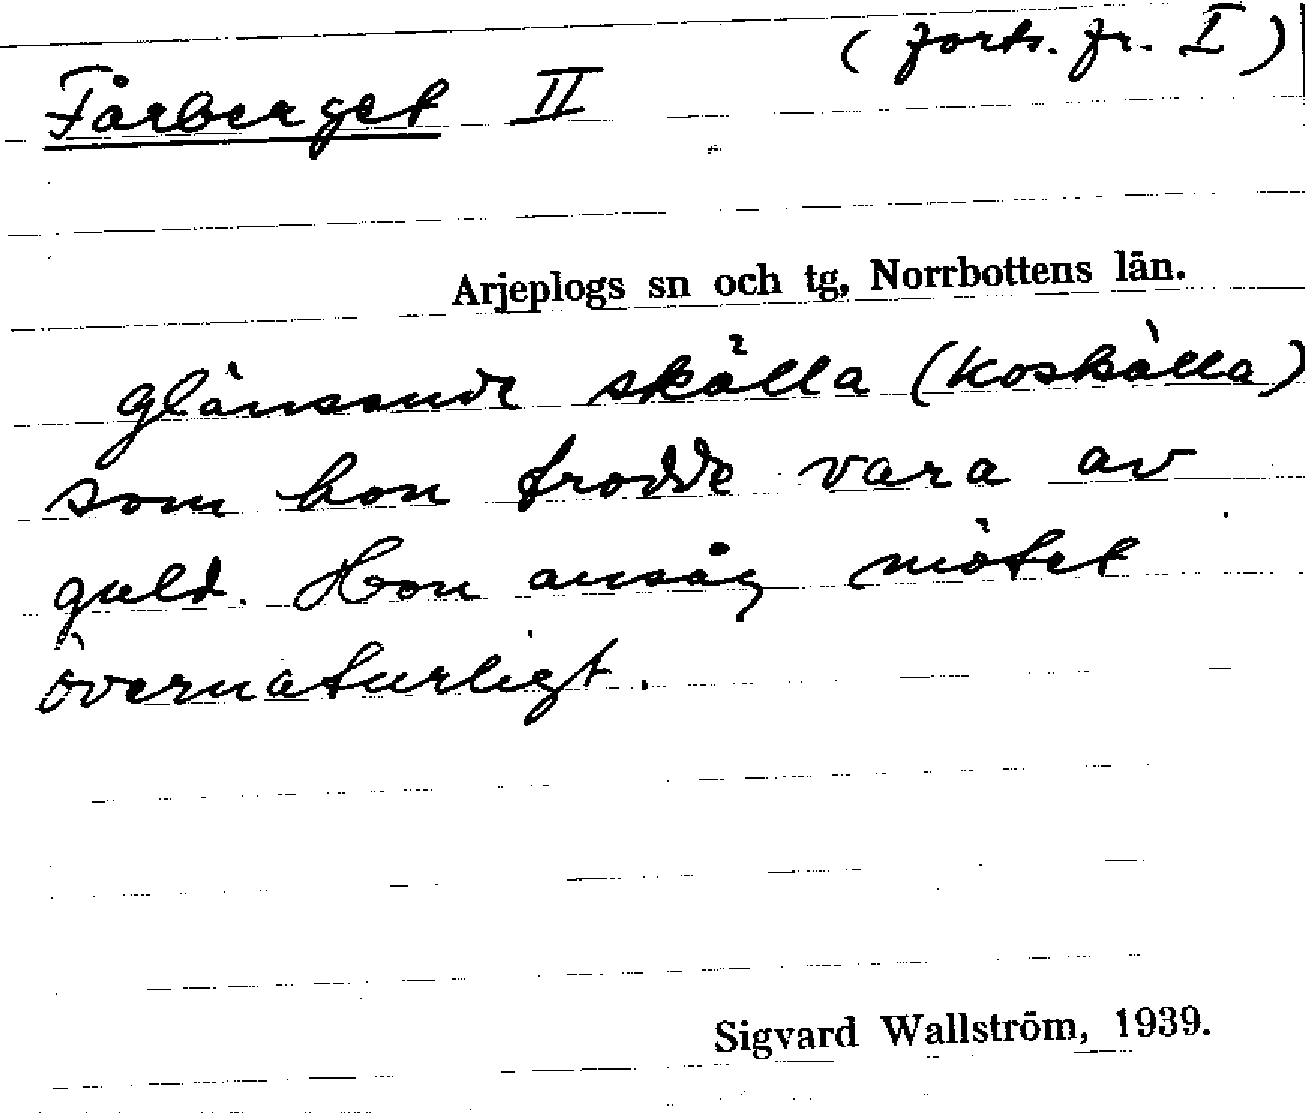 (forts. fr. I)
Fårberget II
Arjeplogs sn och tg, Norrbottens län.
glänsande skälla (koskälla)
som hon trodde vara av
guld. Hon ansåg mötet
övernaturligt.
Sigvard Wallström, 1939.